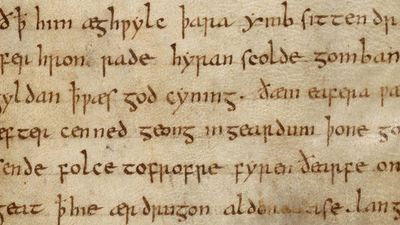 ð ꝥ him æghƿylc þara ymb sittendr
fer hron rade hyran scolde gomban
gyldan ꝥ ƿæs god cyning. ðæm eafera ƿæ
æfter cenned geong in geardum þone go
sende folce tofrofre fyren ðearfe on
geat ꝥ hie ær drugon lang